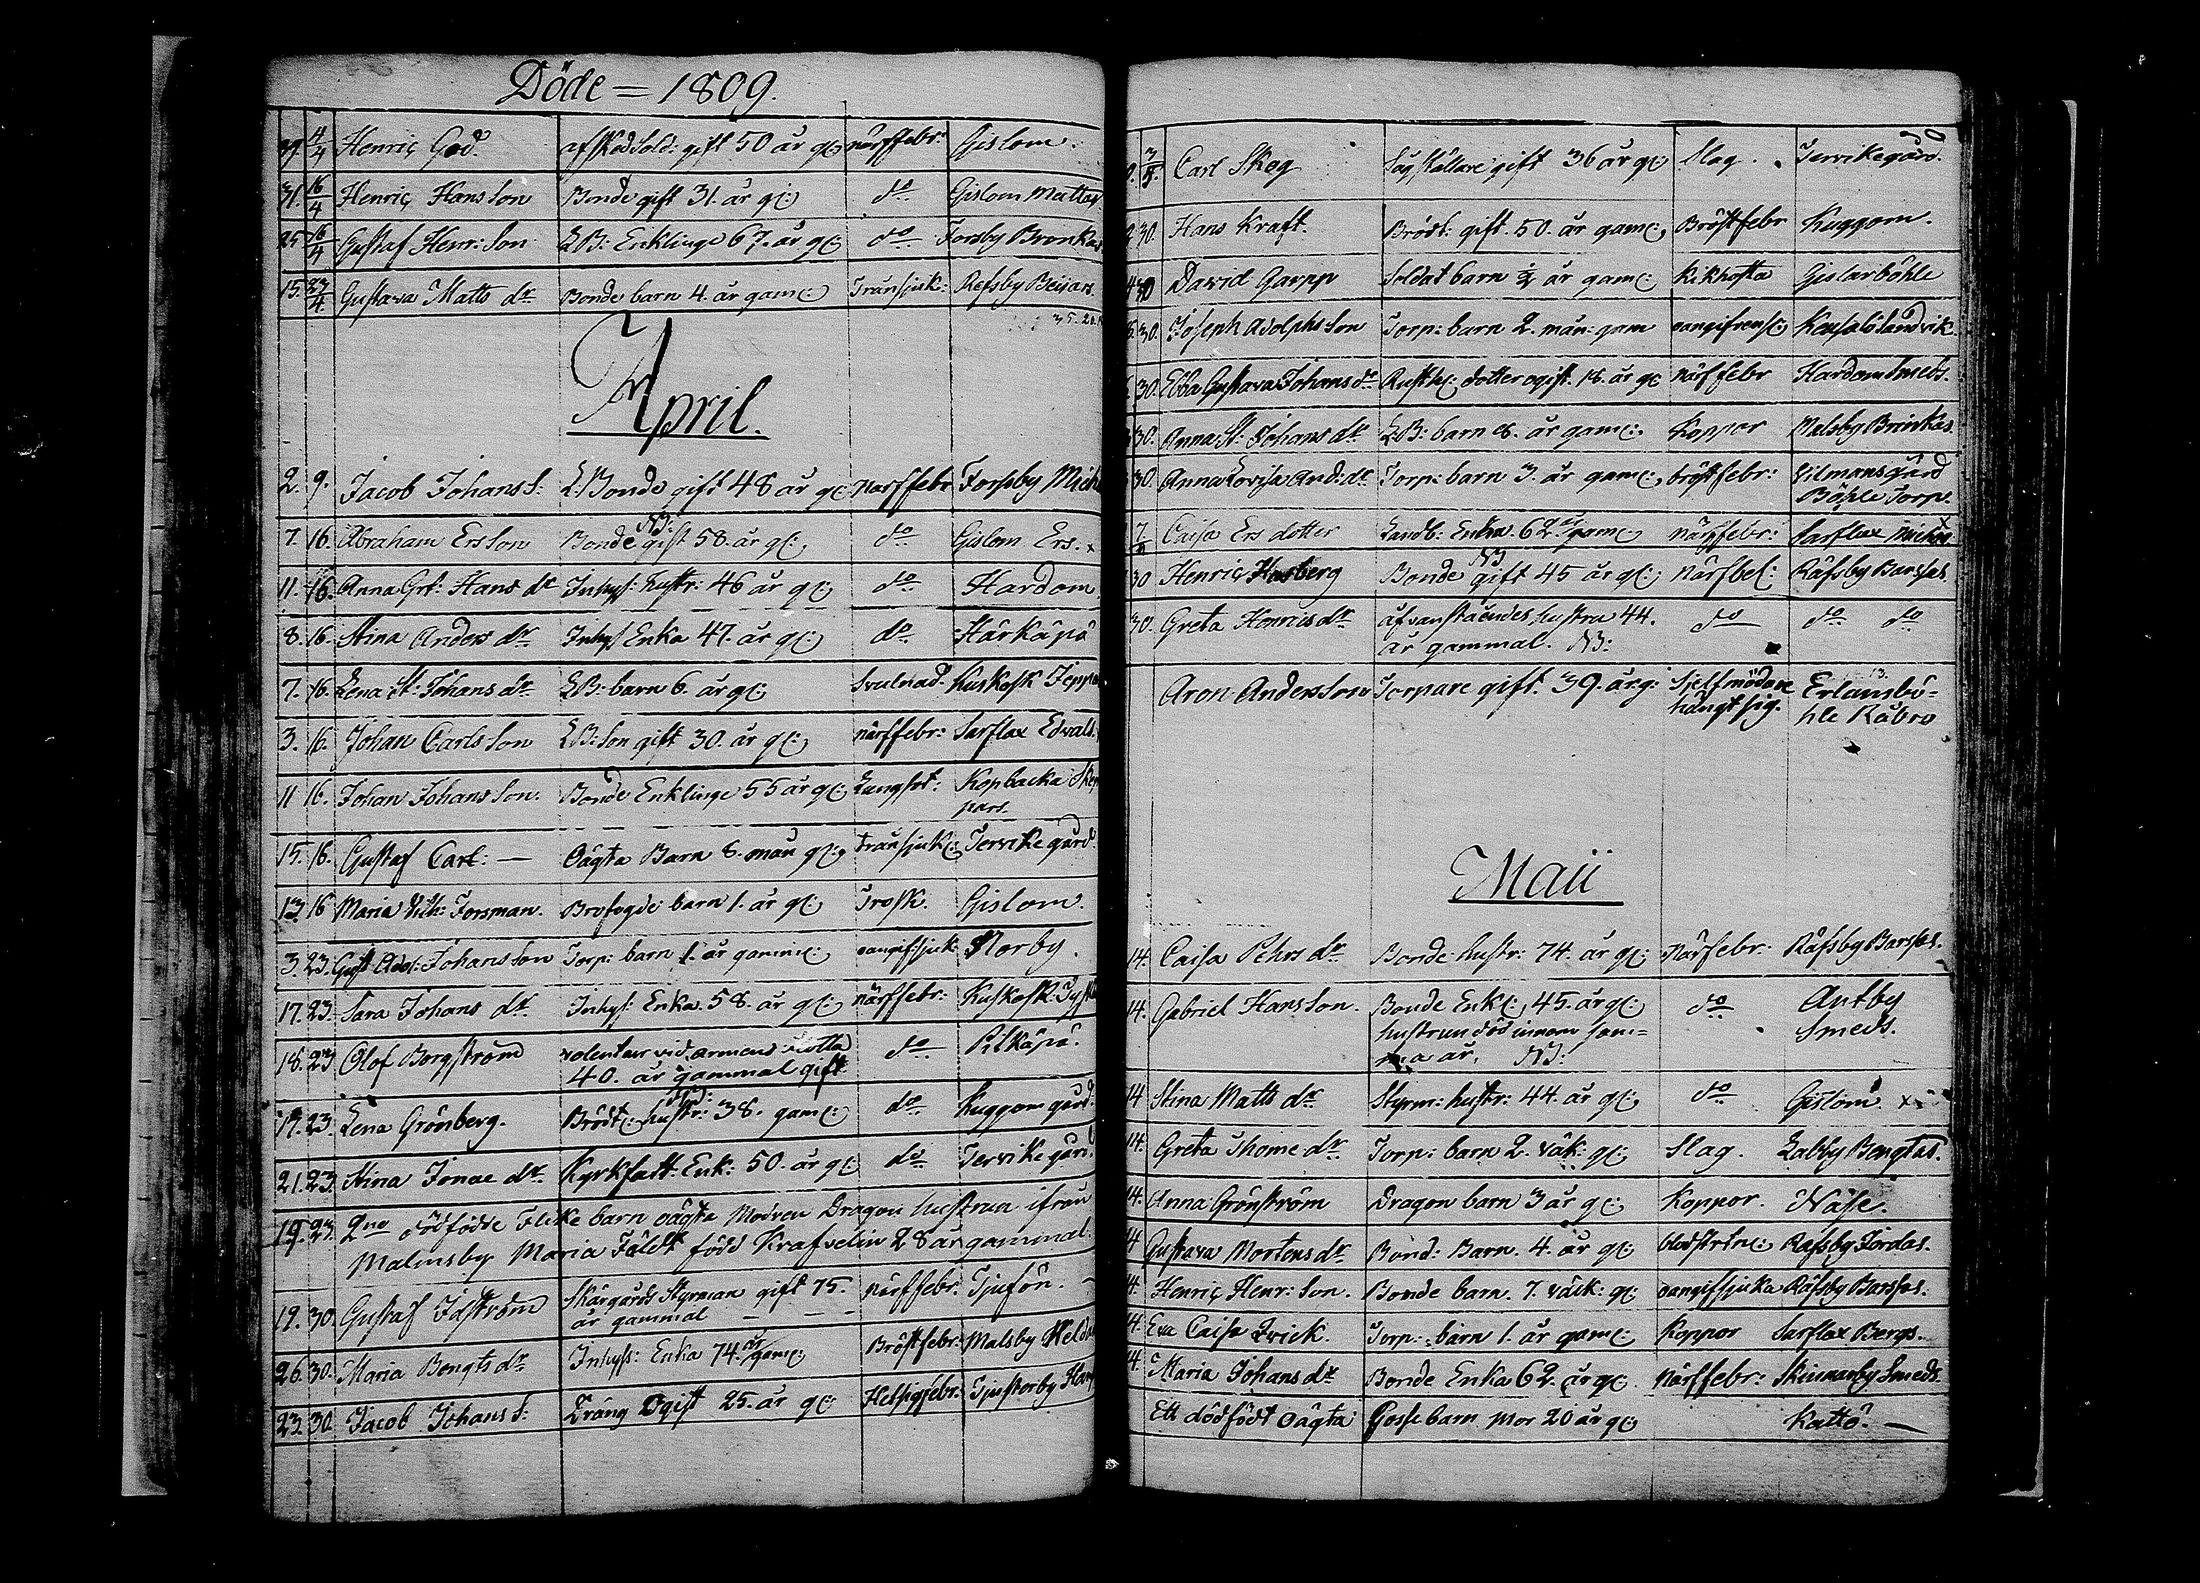 Döde = 1809.
29. 4/4 Henriç God. afsked Sold: gift 50 år gl: närffebr: Gislom.
31. 16/4 Henriç Hansson Bonde gift 31. år gl: do Gislom Mattas
25 16/4 Gustaf Henr: Son LB: Enklinge 67. år gl: do Forsby Bronkas
15. 23/4 Gustava Matts dr Bonde barn 4. år gaml: Trånsjuk: Refsby Beijars.
April.
2. 9. Jacob Johans S: LBonde gift 48 år gl: Närffebr Forsby Mich
7. 16. Abraham Ersson Bonde gift 58. år gl: do Gislom Ers. x
NB:
11. 16. Anna Grt: Hans dr Inhys: hustr: 46 år gl: do Hardom
8. 16. Stina Anders dr Inhys Enka 47. år gl: do Härkäpä
7. 16. Lena St: Johans dr LB: barn 6. år gl: Svulnad. Kuskosk Jepp
3. 16. Johan Carlsson LB: Son gift 30. år gl: närffebr: Sarflax Edvalds
11 16. Johan Johansson. Bonde Enklinge 55 år gl: Lungsot: Kopbacka Skep
pars.
15. 16. Gustaf Carl: — Oägta Barn 8. mån gl: transjuk: Tervike gård
13. 16 Maria Vilh: Forsman. Brofogde barn 1. år gl: Trosk. Gislom.
3. 23. Gust Adol: Johansson Torp: barn 1. år gamml: oangifsjuk: Norby.
17. 23. Sara Johans dr Inhys: Enka. 58. år gl: närffebr: Kuskosk
18. 23 Olof Borgström volentair vid armens flotta do Pilkäpä.
40. år gammal gift
19. 23. Lena Grönberg. Brödt: hustr: 38. gaml: do Kuggom gård
21. 23. Stina Jonae dr Kyrkfatt: Enk: 50. år gl: do Tervike gård.
19. 23. 2ne dödfödde Flicke barn oägta Modren Dragon hustrun ifrån
Malmsby Maria Fäldt född Krafvelin 28 år gammal.
19. 30. Gustaf Idström Skärgårds Styrman gift 75. närffebr. Tjufön. —
år gammal — —
26. 30. Maria Bengts dr Inhyss: Enka 74. år gaml: Bröstfebr: Malsby
23. 30. Jacob Johans S: Dräng Ogift 25. år gl: Hetsigfebr. Tjusterby
3/5. Carl Skog Sågställare gift 36 år gl: Slag. Tervikegård.
30. Hans Kraft. Brödt: gift. 50. år gaml: Bröstfebr Kuggom.
30 David Garpp Soldat barn ½ år gaml: Kikhosta Gislarböhle
30. Joseph Adolphsson Torp: barn 2. mån: gam oangifvensl: landvik.
30. Ebba Gustava Johans dr Rusth: dotter ogift. 18. år gl närffebr Hardom Smeds.
30. Anna St: Johans dr LB: barn 8. år gaml: Koppor Malsby Brinkas.
30 Anna Lovisa And: dr Torp: barn 3. år gaml: bröstfebr: Lilmansgård
Böhle Torp.
7/ Caisa Ersdotter Landb: Enka. 62. år gaml: närffebr: Sarflax Michos. x
30 Henriç Hasberg Bonde gift 45 år gl: Närfbel: Räfsby Barsfas.
NB
30. Greta Henrics dr åfvanståendes hustru 44. do do do
år gammal. NB:
Aron Andersson Torpare gift. 39. år g: Sjelfmödare Erlandsbö=
hängt sig. hle Råbro
Maii
14. Caisa Pehrs dr Bonde hustr: 74. år gl: Närfebr: Räfsby Barsfas.
14. Gabriel Hansson. Bonde Enkl: 45. år gl: do Antby
hustrun död innom sam= Smeds.
ma år. NB:
14 Stina Matts dr Styrm: hustr: 44. år gl: do Gislom x
14. Greta Thome dr Torp: barn 2. väk: gl: Slag. Labby Bengtas.
14. Anna Grönström Dragon barn 3 år gl: Koppor. Näse.
14 Gustava Mortens dr Bond: Barn. 4. år gl: Räfsby Jordas.
14. Henriç Henr: Son. Bonde barn. 7. väck: gl: oangifsjuka Räfsby Barsfas.
14. Eva Caisa Qvick. Torp: barn 1. år gaml: Koppor Sarflax Bergs.
14. Maria Johans dr Bonde Enka 62. år gl närffebr: Skinnarby Smeds.
Ett dödfödt oägta Gosse barn mor 20 år gl: Kattö. —